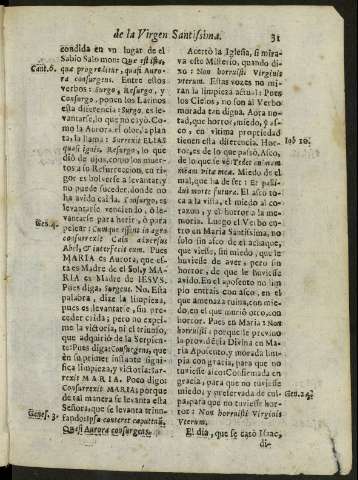 de la Virgen Santissima. 31
condida en vn lugar de el
Sabio Salomon: Quæ est ista,
Cant. 6. quæ progreditur, quasi Auro-
ra consurgens. Entre estos
verbos: Surgo, Resurgo, y
Consurgo, ponen los Latinos
esta diferencia: Surgo, es le-
vantarse, lo que no cayò. Co-
mo la Aurora, el olor, la plan-
ta, la llama: Surrexit ELIAS
quasi ignis. Resurgo, lo que
diò de ojos, como los muer-
tos a su Resurreccion, en ri-
gor es bolverse a levantar: y
no puede suceder, donde no
ha avido caìda. Consurgo, es
levantarse vendiendo, ò le-
vantarse para herir, ò para
Gen. 4. pelear: Cum essent in agro
consurrexit Cain adversus
Abel, & interfecit eum. Pues
MARIA es Aurora, que es-
ta es Madre de el Sol, y MA-
RIA es Madre de IESVS.
Pues diga, Surgens. No. Esta
palabra, dize la limpieza,
pues es levantarse, sin pre-
ceder caìda; pero no expri-
me la victoria, ni el triunfo,
que adquiriò de la Serpien-
te: Pues diga: Consurgens, que
en su primer instante signi-
fica limpieza, y victoria:
surrexit MARIA. Poco digo:
Consurrexit MARIA; porque
de tal manera se levanta esta
Señora, que se levanta triun-
Genes. 3. fando: Ipsa conteret caput tuũ,
Quasi Aurora consurgens.
Acertò la Iglesia, si mira-
va este Misterio, quando di-
xo: Non horruisti Virginis
vterum. Estas vozes no mi-
ran la limpieza actual: Pues
los Cielos, no son al Verbo
morada tan digna. Aora no-
tad, que horror, miedo, y as-
co, en vitima propriedad
tienen esta diferencia. Hor-
Iob 10. ror, es de lo que passò, Asco,
de lo que se vè: Tædet animam
meam vitæ meæ. Miedo de el
mal, que ha de ser: Et palli-
da morte futura. El asco to-
ca a la vista, el miedo al co-
razon, y el horror a la me-
moria. Luego el Verbo en-
trò en Maria Santissima, no
solo sin asco de el achaque,
que viesse, sin miedo, que le
huviesse de aver, pero sin
horror, de que le huviesse
avido. En el aposento no lim-
pio entrais con asco, en el
que amenaza ruina, con mie-
do, en el que muriò otro, con
horror. Pues en Maria: Non
horruisti: porque se previene
la providẽcia Divina en Ma-
ria Aposento, y morada lim-
pia con gracia, para que no
tuviesse asco: Confirmada en
gracia, para que no tuviesse
miedo; y preservada de cul-
Gen. 24. pa, para que no tuviesse hor-
ror: Non horruisti Virginis
Vterum.
El dia, que se casò Isaac,
di-